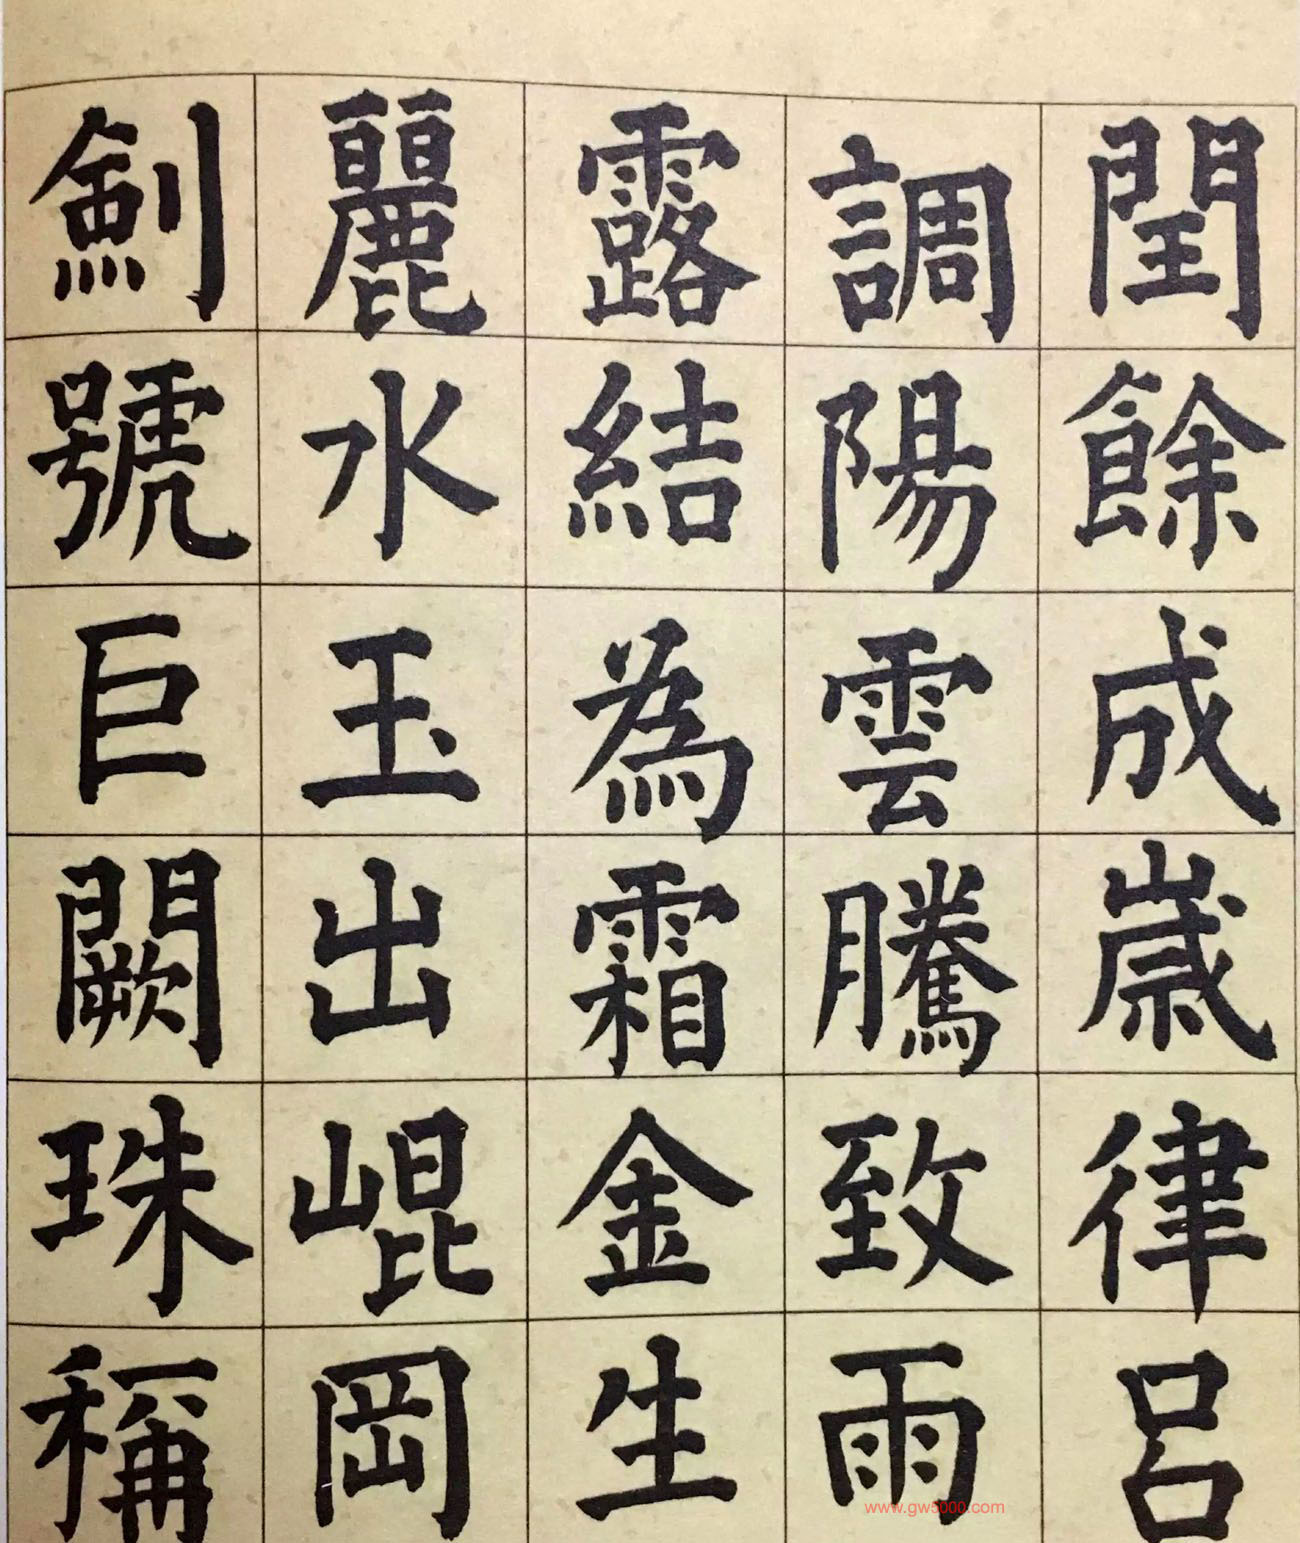 閏餘成歲律呂
調陽雲騰致雨
露結為霜金生
麗水玉出崐岡
劍號巨闕珠稱
www.gw5000.com